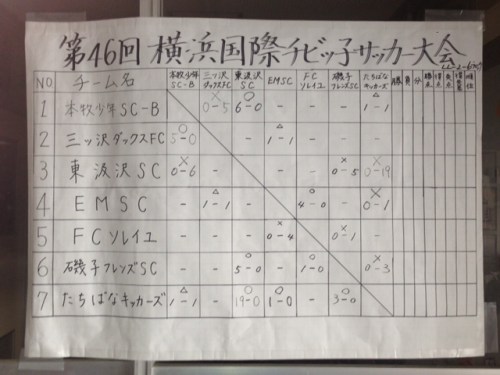 第46回 横浜国際チビッ子サッカー大会
NO チーム名 本牧少年SC-B 三ッ沢ダックスFC 東汲沢SC EMSC FCソレイユ 磯子フレンズSC たちばなキッカーズ 勝 負 分 勝点 得点 失点 得失差 順位
1 本牧少年SC-B × 0-5 ○ 6-0 - - - △ 1-1
2 三ッ沢ダックスFC ○ 5-0 - △ 1-1 - - -
3 東汲沢SC × 0-6 - - - × 0-5 × 0-19
4 EMSC - △ 1-1 - ○ 4-0 - × 0-1
5 FCソレイユ - - - × 0-4 × 0-1 -
6 磯子フレンズSC - - ○ 5-0 - ○ 1-0 × 0-3
7 たちばなキッカーズ △ 1-1 - ○ 19-0 ○ 1-0 - ○ 3-0